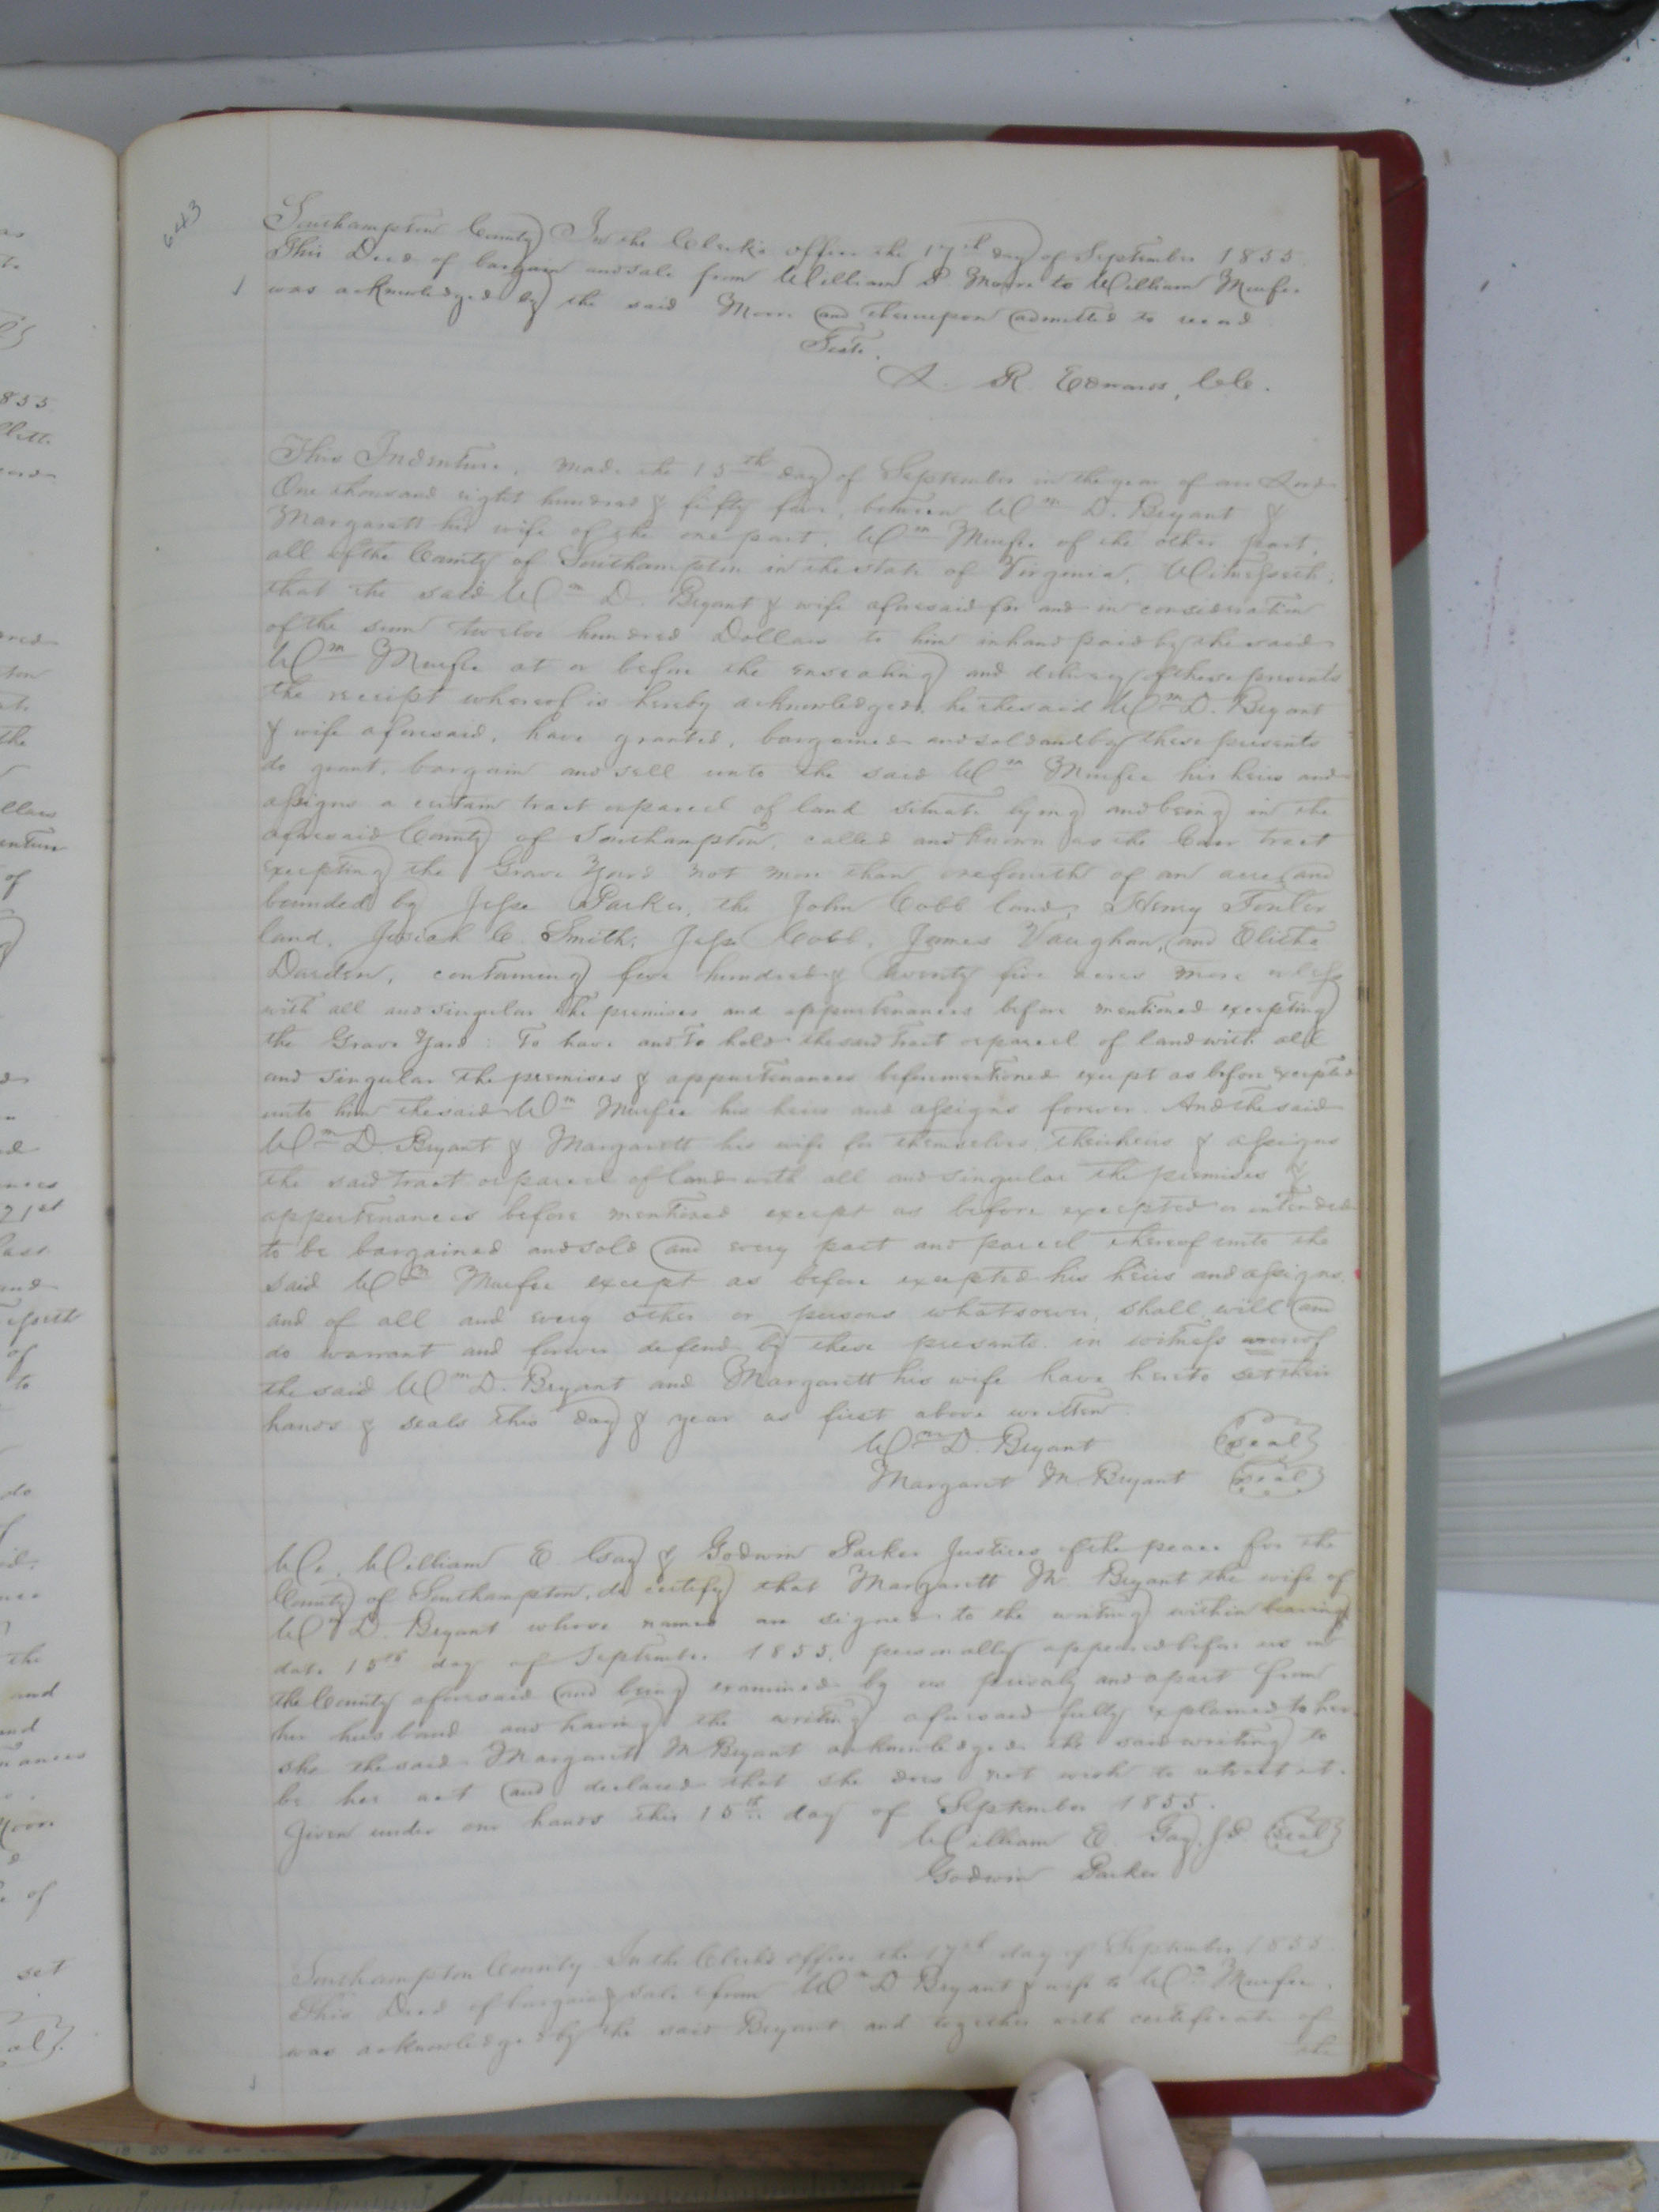 643
Southampton County In the Clerk's office the 17th day of September 1855.
This Deed of bargain and sale from William D. Moore to William Murfee
was acknowledged by the said Moore and thereupon admitted to record
Teste.
L. R. Edwards, C.C.
This Indenture, made the 15th day of September in the year of our Lord
One thousand eight hundred & fifty five, between Wm D. Bryant &
Margarett his wife of the one part, Wm Murfee of the other part,
all of the County of Southampton in the state of Virginia, Witnesseth,
that the said Wm D. Bryant & wife aforesaid for and in consideration
of the sum twelve hundred Dollars to him in hand paid by the said
Wm Murfee at or before the ensealing and delivery of these presents
the receipt whereof is hereby acknowledged, he the said Wm D. Bryant
& wife aforesaid, have granted, bargained and sold and by these presents
do grant, bargain and sell unto the said Wm Murfee his heirs and
assigns a certain tract or parcel of land situate lying and being in the
aforesaid County of Southampton, called and known as the tract
excepting the Grave Yard not more than one fourth of an acre, and
bounded by Jesse Parker, the John Cobb land, Henry
land, Josiah C. Smith, Jesse Cobb, James Vaughan, and Elisha
Darden, containing five hundred & twenty five acres more or less
with all and singular the premises and appurtenances before mentioned excepting
the Grave Yard: To have and to hold the said tract or parcel of land with all
and singular the premises & appurtenances before mentioned except as before excepted
unto him the said Wm Murfee his heirs and assigns forever. And the said
Wm D. Bryant & Margarett his wife for themselves their heirs & assigns
the said tract or parcel of land with all and singular the premises &
appurtenances before mentioned except as before excepted or intended
to be bargained and sold and every part and parcel thereof unto the
said Wm Murfee except as before excepted his heirs and assigns,
and of all and every other or persons whatsoever, shall, will and
do warrant and forever defend by these presents. in witness whereof
the said Wm D. Bryant and Margarett his wife have hereto set their
hands & seals this day & year as first above written.
Wm D. Bryant {seal}
Margaret M. Bryant {seal}
We, William E. Gay & Godwin Parker Justices of the peace for the
County of Southampton, do certify that Margarett M. Bryant the wife of
Wm D. Bryant whose names are signed to the writing within bearing
date 15th day of September 1855, personally appeared before us in
the County aforesaid and being examined by us privately and apart from
her husband and having the writing aforesaid fully explained to her
she the said Margaret M Bryant acknowledged the said writing to
be her act and declared that she does not wish to retract it.
Given under our hands this 15th day of September 1855.
William E. Gay. J.P. {seal}
Godwin Parker
Southampton County In the Clerk's office the 17th day of September 1855.
This Deed of bargain & sale from Wm D Bryant & wife to Wm Murfee.
was acknowledged by the said Bryant and together with certificate of
the